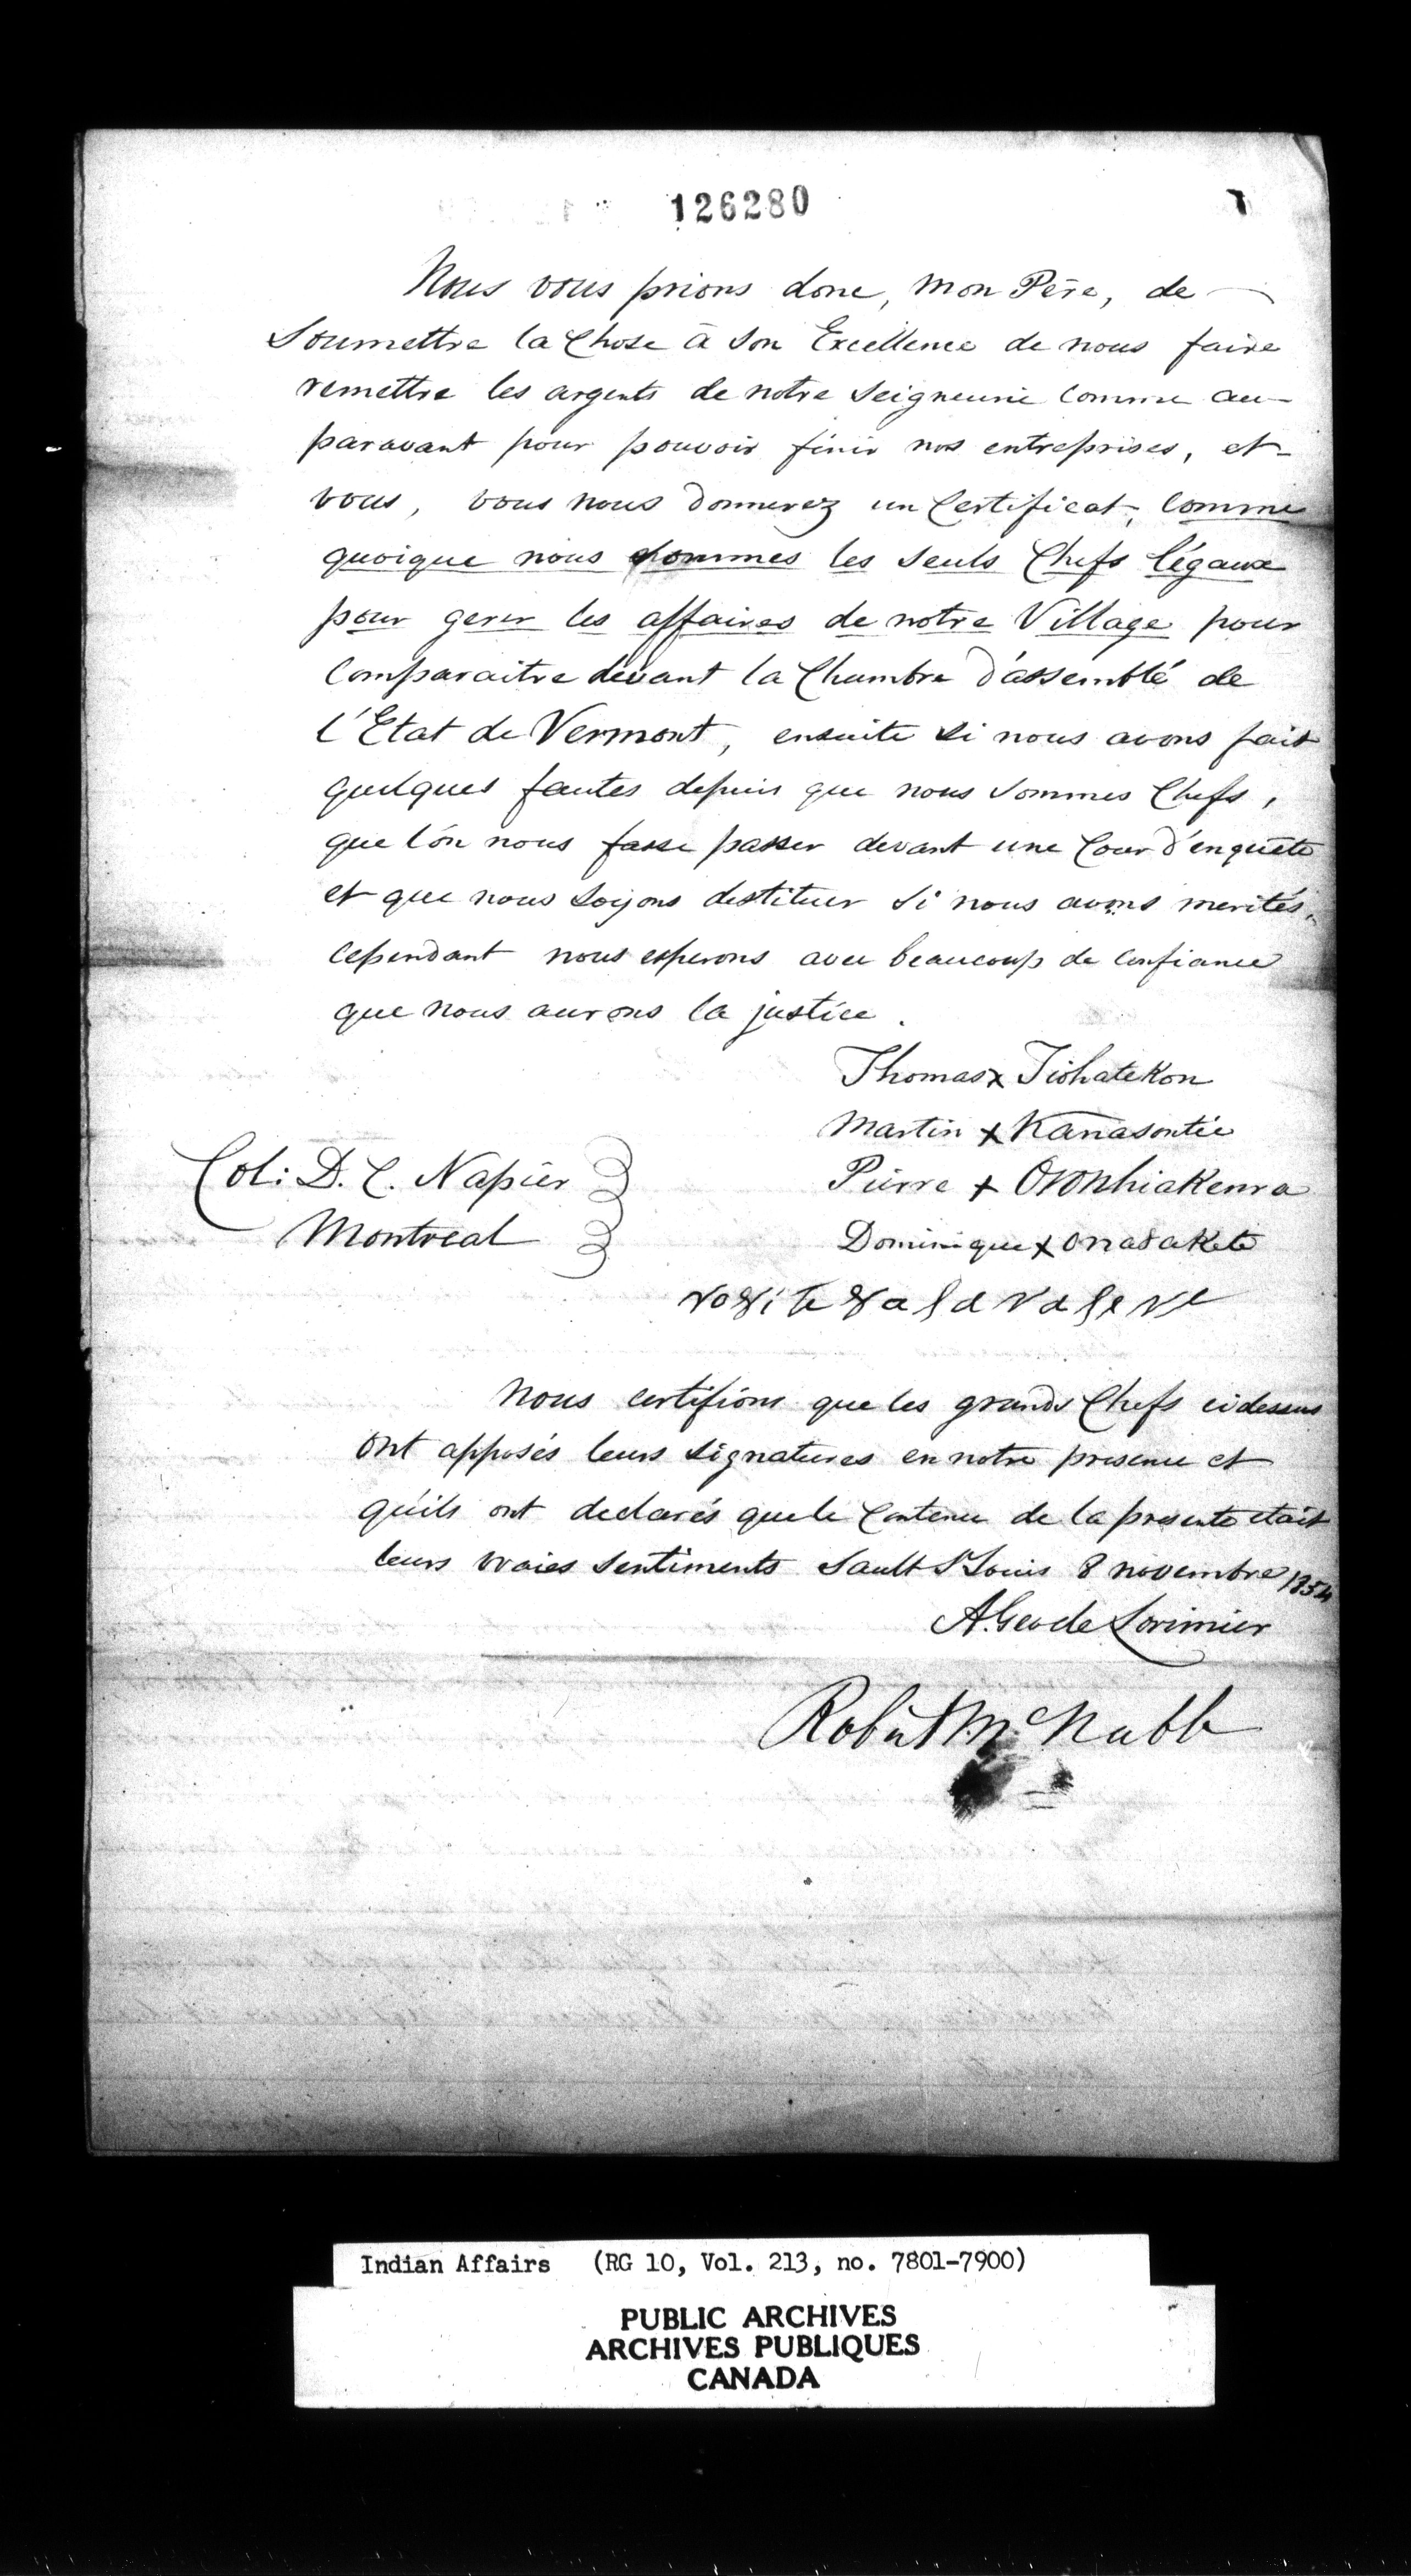 126280
Nous vous prions donc, mon Père, de
Soumettre la Chose à Son Excellence de nous faire
remettre les argents de notre Seigneurie comme au-
paravant pour pouvoir finir nos entreprises, et
vous, vous nous donnerez un Certificat, comme
quoique nous sommes les seuls Chefs légaux
pour gerer les affaires de notre Village pour
Comparaitre devant la Chambre d'assemblé de
l'Etat de Vermont, ensuite si nous avons fait
quelques fautes depuis que nous sommes Chefs,
que l'on nous fasse passer devant une Cour d'enquête
et que nous soyons destituer si nous avons merités,
cependant nous esperons avec beaucoup de confiance
que nous aurons la justice.
Thomas x Tiohatekon
Martin x Kanasontie
Pierre x Oronhiakenra
Dominique x Onasakete
Col: D. C. Napier
Montreal
Nous certifions que les grands Chefs cidessus
ont apposés leurs signatures en notre presence et
qu'ils ont declarés que le Contenu de la presente etait
leurs vraies sentiments Sault St Louis 8 novembre 1854
A. Geo de Lorimier
Robert McNabb
Indian Affairs (RG 10, Vol. 213, no. 7801-7900)
PUBLIC ARCHIVES
ARCHIVES PUBLIQUES
CANADA